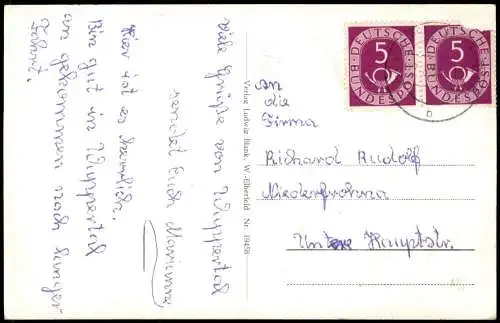 Viele Grüße von Wuppertal
sendet Euch Marianne
Hier ist es herrlich.
Bin gut in Wuppertal
angekommen nach langer
Fahrt.
Verlag Ludwig Blank, W.-Elberfeld Nr. 1945B
DEUTSCHE
BUNDESPOST
5
DEUTSCHE
BUNDESPOST
5
b
An
die
Firma
Richard Rudolf
Niederfrohna
Untere Hauptstr.